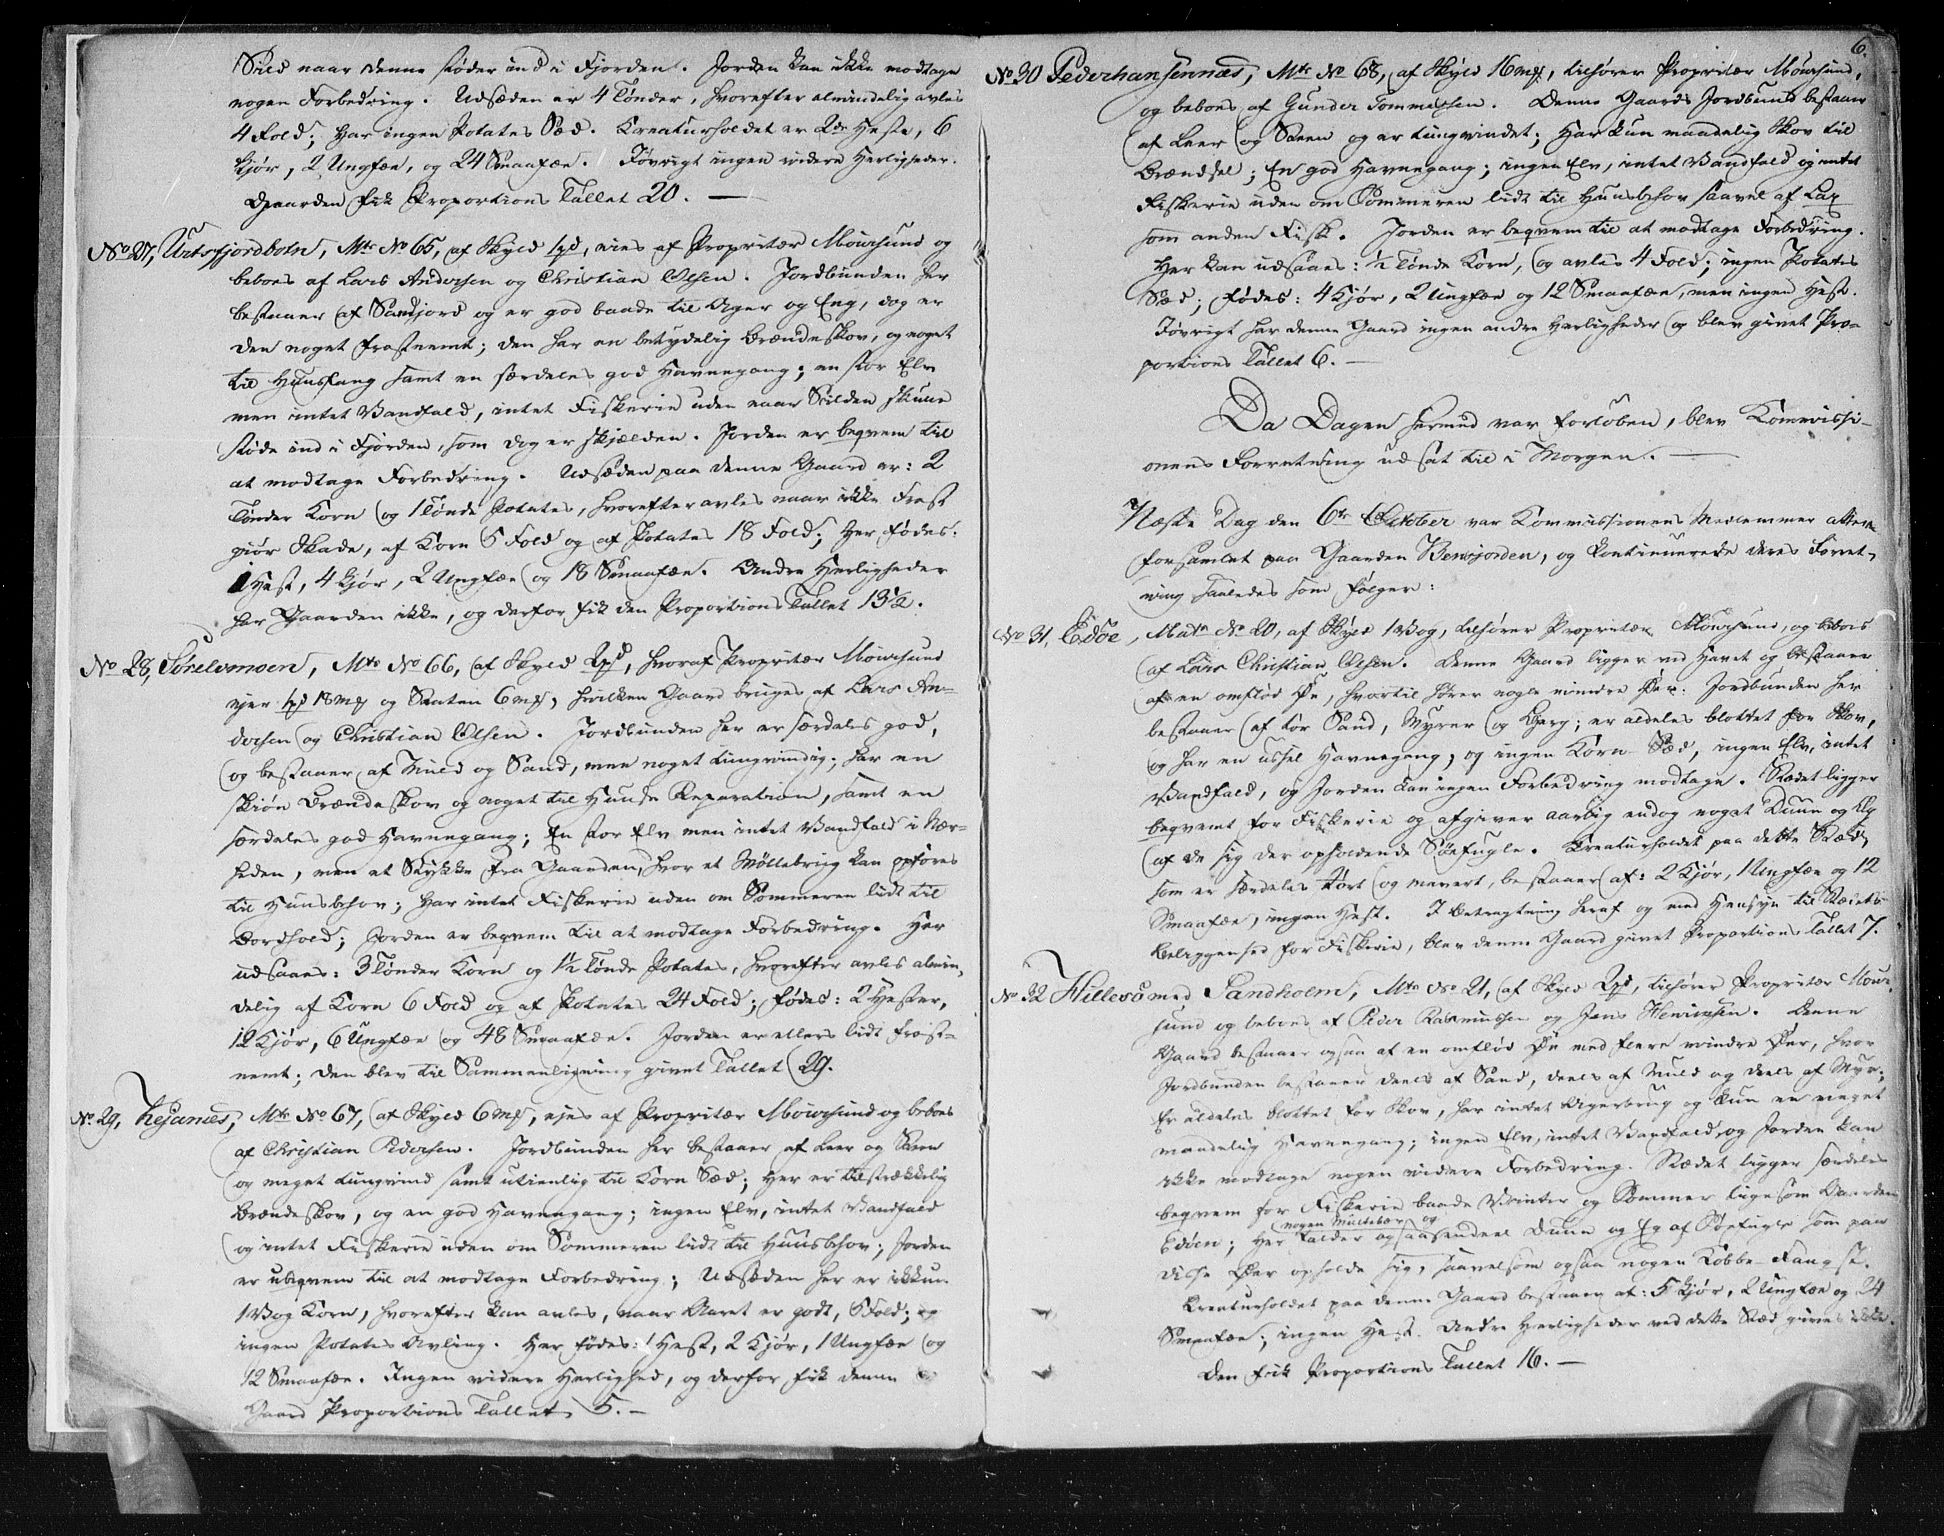 Sild naar denne støder ind i Fjorden. Jorden kan ikke modtage
nogen Forbedring. Udsæden er 4 Tønder, hvorefter almindelig avles
4 Fold; har ingen Potates Sæd. Kreaturholdet er 2de Heste, 6
Kjør, 2 Ungfæe, og 24 Smaafæe. Iøvrigt ingen videre Herligheder.
Gaarden fik Proportions Tallet 20. —
No 27, Urtsfjordbotn, Mtr No 65, af Skyld 1pd, eies af Proprietær Moursund og
beboes af Lars Andersen og Christian Olsen. Jordbunden her
bestaaer af Sandjord og er god baade til Ager og Eng, dog er
den noget frostnemt; den har en betydelig Brændeskov, og noget
til Huusfang samt en særdeles god Havnegang; en stor Elv
men intet Vandfald, intet Fiskerie uden naar Silden skulle
støde ind i Fjorden, som dog er skjælden. Jorden er beqvem til
at modtage Forbedring. Udsæden paa denne Gaard er: 2
Tønder Korn og 1 Tønde Potates, hvorefter avles naar ikke Frost
giør Skade, af Korn 5 Fold og af Potates 18 Fold; Her fødes:
1 Hest, 4 Kjør, 2 Ungfæe og 18 Smaafæe. Andre Herligheder
har Gaarden ikke, og derfor fik den Proportions Tallet 13½.
No 28, Sörelvmoen, Mtr No 66, af Skyld 2pd, hvoraf Proprietær Moursund
ejer 1pd 18mk og Staten 6mk, hvilken Gaard bruges af Lars An-
dersen og Christian Olsen. Jordbunden her er særdeles god,
og bestaaer af Muld og Sand, men noget tungvindig; har en
skiøn Brændeskov og noget til Huuse Reparation, samt en
særdeles god Havnegang; En stor Elv men intet Vandfald i Nær-
heden, men et Stykke fra Gaarden, hvor et Møllebrug kan opføres
til Huusbehov; har intet Fiskerie uden om Sommeren lidt til
Bordhold; Jorden er beqvem til at modtage Forbedring. Her
udsaaes: 3 Tønder Korn og 1½ Tønde Potates, hvorefter avles almin-
delig af Korn 6 Fold og af Potates 24 Fold; fødes: 2 Hester,
12 Kjør, 6 Ungfæe og 48 Smaafæe. Jorden er ellers lidt frost-
nemt; den blev til Sammenligning givet Tallet 29.
No 29, Kesanæs, Mtr No 67, af Skyld 6mk, ejes af Proprietær Moursund og beboes
af Christian Pedersen. Jordbunden her bestaaer af Leer og Steen
og meget tungvind samt utienlig til Korn Sæd; her er tilstrækkelig
Brændeskov, og en god Havnegang; ingen Elv, intet Vandfald
og intet Fiskerie uden om Sommeren lidt til Huusbehov; Jorden
er ubeqvem til at modtage Forbedring; Udsæden her er ikkun
1 Vog Korn, hvorefter kan avles, naar Aaret er godt, 5 Fold; og
ingen Potates Avling. Her fødes: 1 Hest, 2 Kjør, 1 Ungfæe og
12 Smaafæe. Ingen videre Herlighed, og derfor fik denne
Gaard Proportions Tallet 5. —
6.
No 30 Pederhansennæs, Mtr No 68, af Skyld 16mk, tilhører Proprietær Moursund,
og beboes af Gunder Tommesen. Denne Gaards Jordbund bestaaer
af Leer og Steen og er tungvindet; Har kun maadelig Skov til
Brændsel; En god Havnegang; ingen Elv, intet Vandfald og intet
Fiskerie uden om Sommeren lidt til Huusbehov saavel af Lax
som anden Fisk. Jorden er beqvem til at modtage Forbedring.
Her kan udsaaes: ½ Tønde Korn, og avles 4 Fold; ingen Potates
Sæd; fødes: 4 Kjør, 2 Ungfæe og 12 Smaafæe, men ingen Hest.
Iøvrigt har denne Gaard ingen andre Herligheder og blev givet Pro-
portions Tallet 6. —
Da Dagen hermed var forløben, blev Kommissi-
onens Forretning udsat til i Morgen. —
Næste Dag den 6te October var Kommissionens Medlemmer atter
forsamlet paa Gaarden Bensjorden, og kontinuerede deres Forret-
ning saaledes som følger:
No 31, Edøe, Matr No 20, af Skyld 1 Vog, tilhører Proprietær Moursund, og beboes
af Lars Christian Olsen. Denne Gaard ligger ved Havet og bestaaer
af en omflød Øe, hvortil hører nogle mindre Øer. Jordbunden her
bestaaer af tør Sand, Myrer og Berg; er aldeles blottet for Skov,
og har en ussel Havnegang; og ingen Korn Sæd, ingen Elv, intet
Vandfald, og Jorden kan ingen Forbedring modtage. Stædet ligger
beqvemt for Fiskerie og afgiver aarlig endog noget Duun og Eg
af de sig der opholdende Søefugle. Kreaturholdet paa dette Stæd,
som er særdeles tørt og mavert, bestaaer af: 2 Kjør, 1 Ungfæe og 12
Smaafæe, ingen Hest. I Betragtning heraf og med Hensyn til Stædets
Beliggenhed for Fiskerie, blev denne Gaard givet Proportions Tallet 7.
No 32 Hillesø med Sandholm, Mtr No 21, af Skyld 2pd, tilhører Proprietær Mour-
sund og beboes af Peder Rasmussen og Jens Henrichsen. Denne
Gaard bestaaer ogsaa af en omflød Øe med flere mindre Øer, hvor
Jordbunden bestaaer deels af Sand, deels af Muld og deels af Myr;
Er aldeles blottet for Skov, har intet Agerbrug og kun en meget
maadelig Havnegang; ingen Elv, intet Vandfald, og Jorden kan
ikke modtage nogen videre Forbedring. Stædet ligger særdeles
beqvem for Fiskerie baade Vinter og Sommer ligesom Gaarden
nogen Multebær og
Edøen; Her falder ogsaa endeel Duun og Eg af Søefugle som paa
disse Øer opholde sig, saavelsom ogsaa nogen Kobbe-Fangst.
Kreaturholdet paa denne Gaard bestaaer af: 5 Kjør, 2 Ungfæe og 24
Smaafæe; ingen Hest. Andre Herligheder ved dette Stæd gives ikke.
Den fik Proportions Tallet 16. —